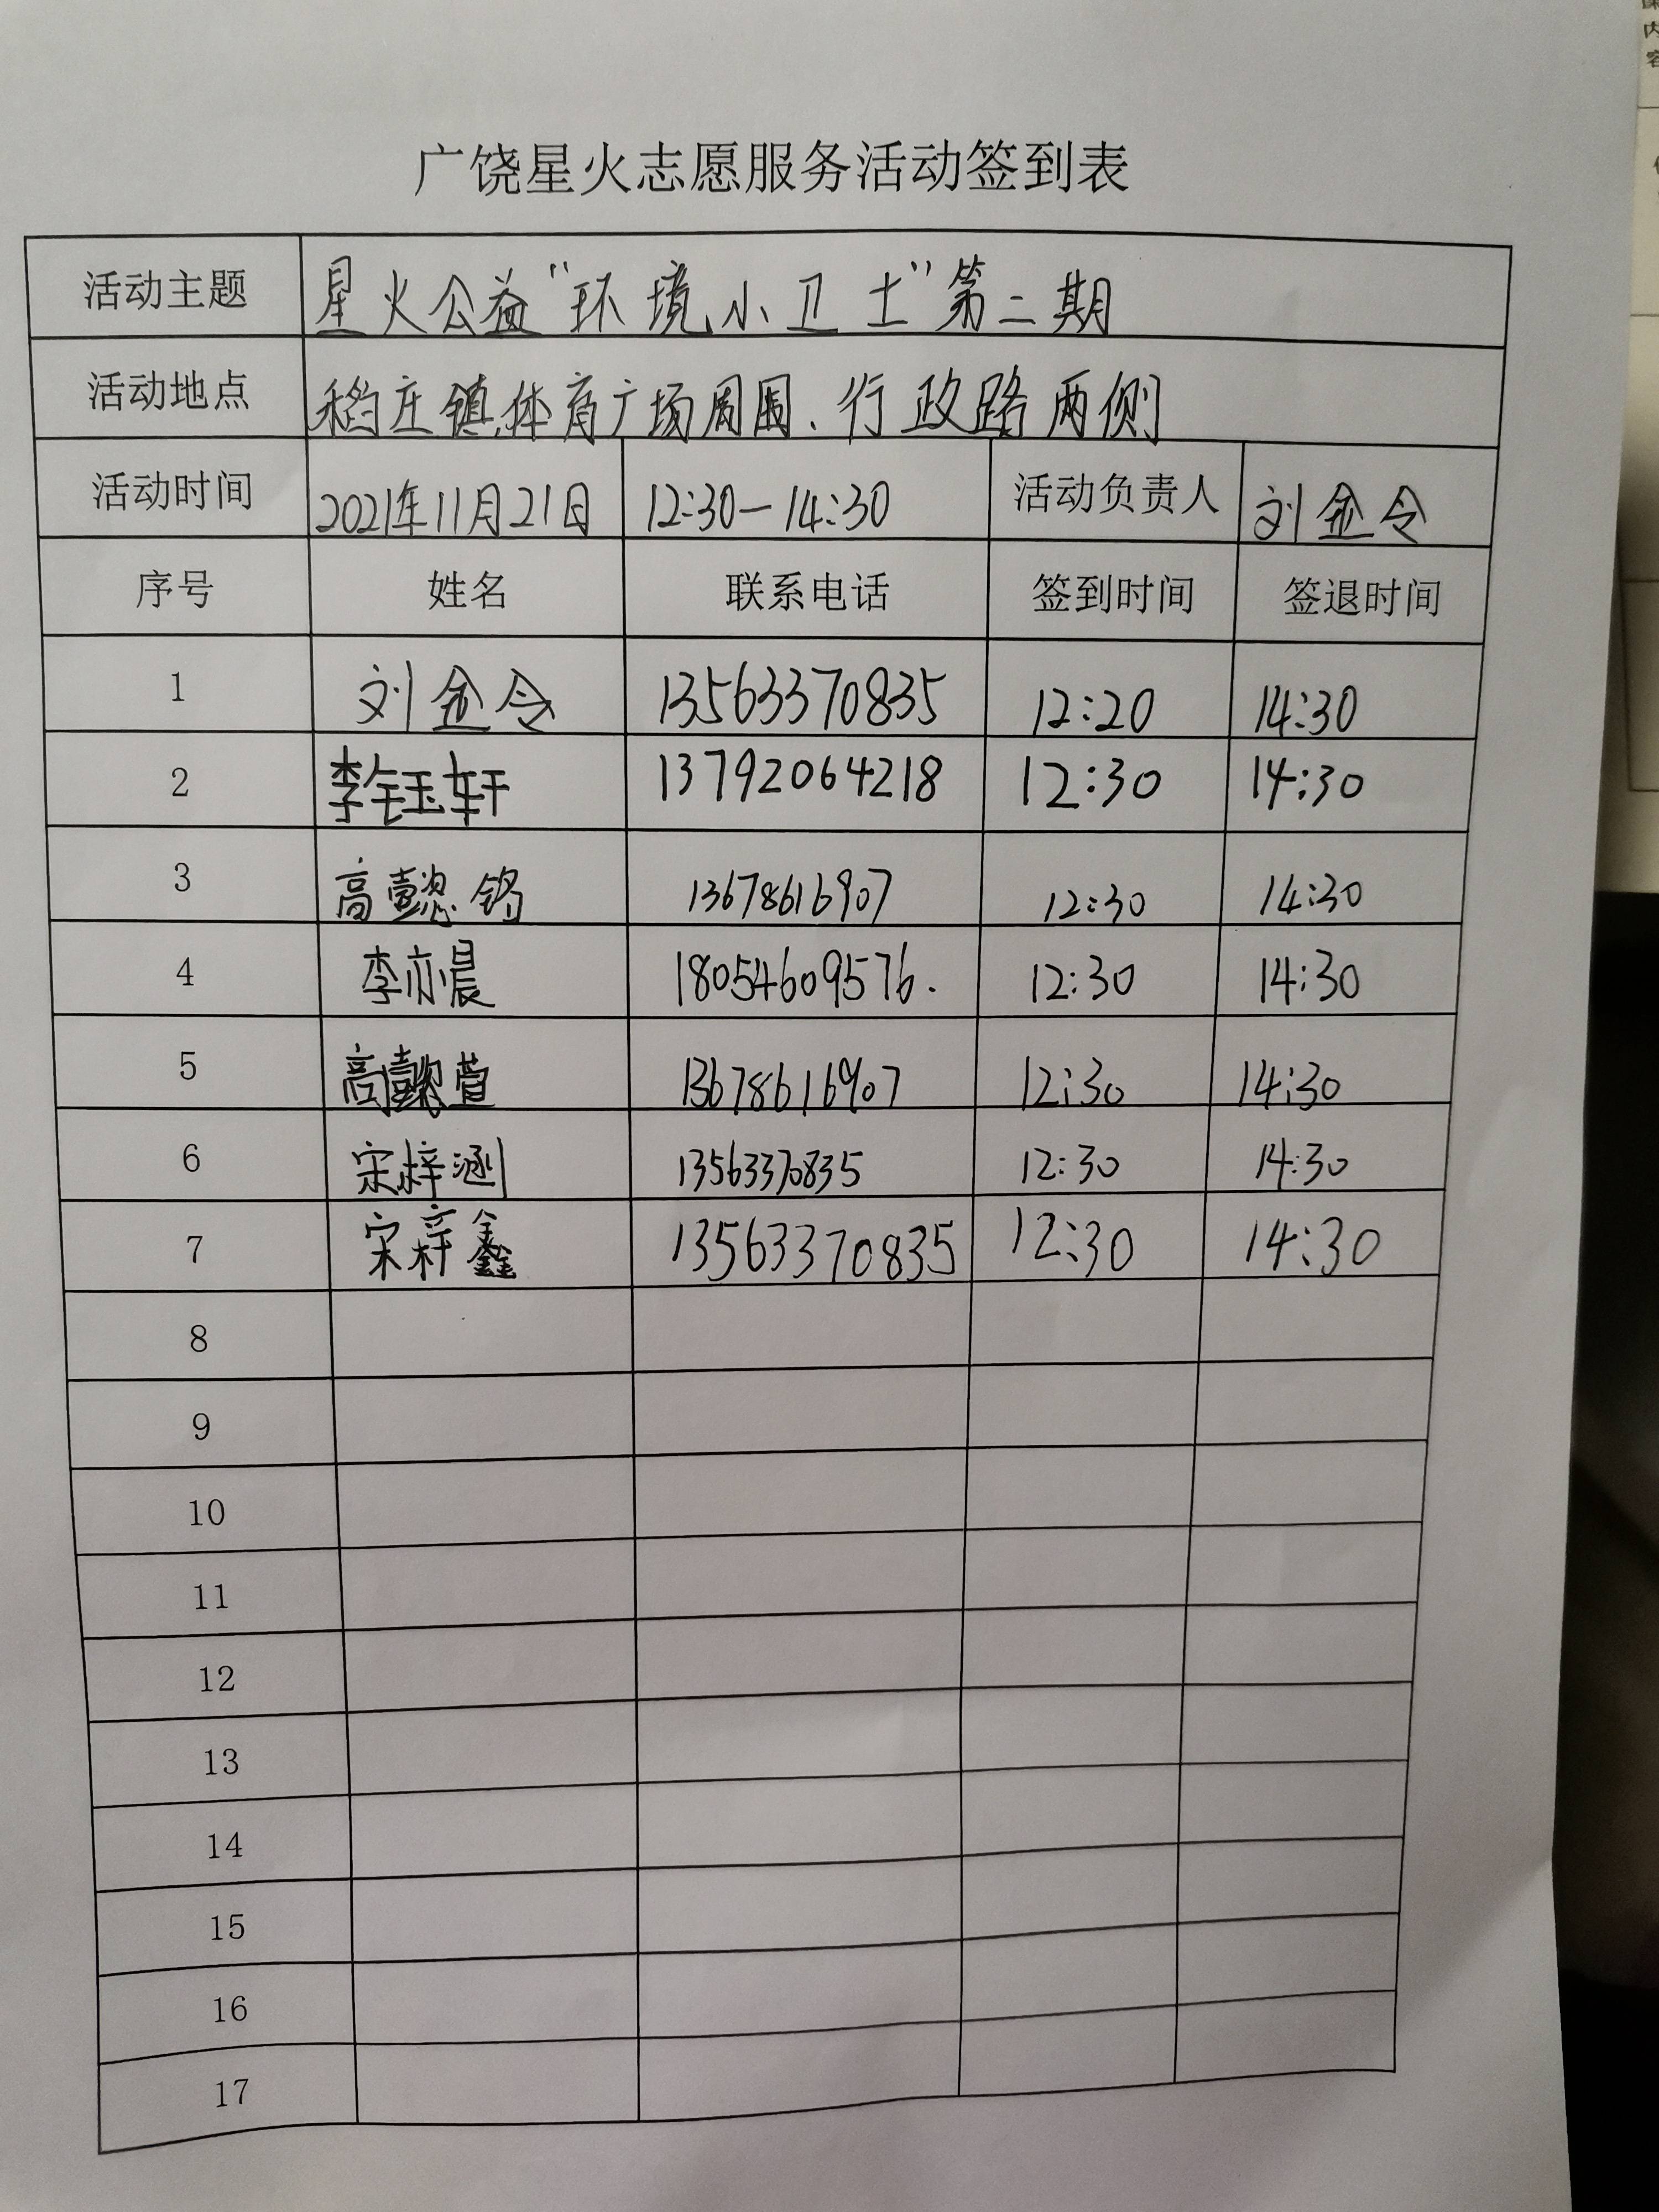 广饶星火志愿服务活动签到表
活动主题 星火公益“环境小卫士”第二期
活动地点 稻庄镇体育广场周围、行政路两侧
活动时间 2021年11月21日 12:30—14:30 活动负责人 刘金令
序号 姓名 联系电话 签到时间 签退时间
1 刘金令 13563370835 12:20 14:30
2 李钰轩 13792064218 12:30 14:30
3 高懿铭 13678616907 12:30 14:30
4 李亦晨 18054609576. 12:30 14:30
5 高懿萱 13678616907 12:30 14:30
6 宋梓涵 13563370835 12:30 14:30
7 宋梓鑫 13563370835 12:30 14:30
8
9
10
11
12
13
14
15
16
17
内
容